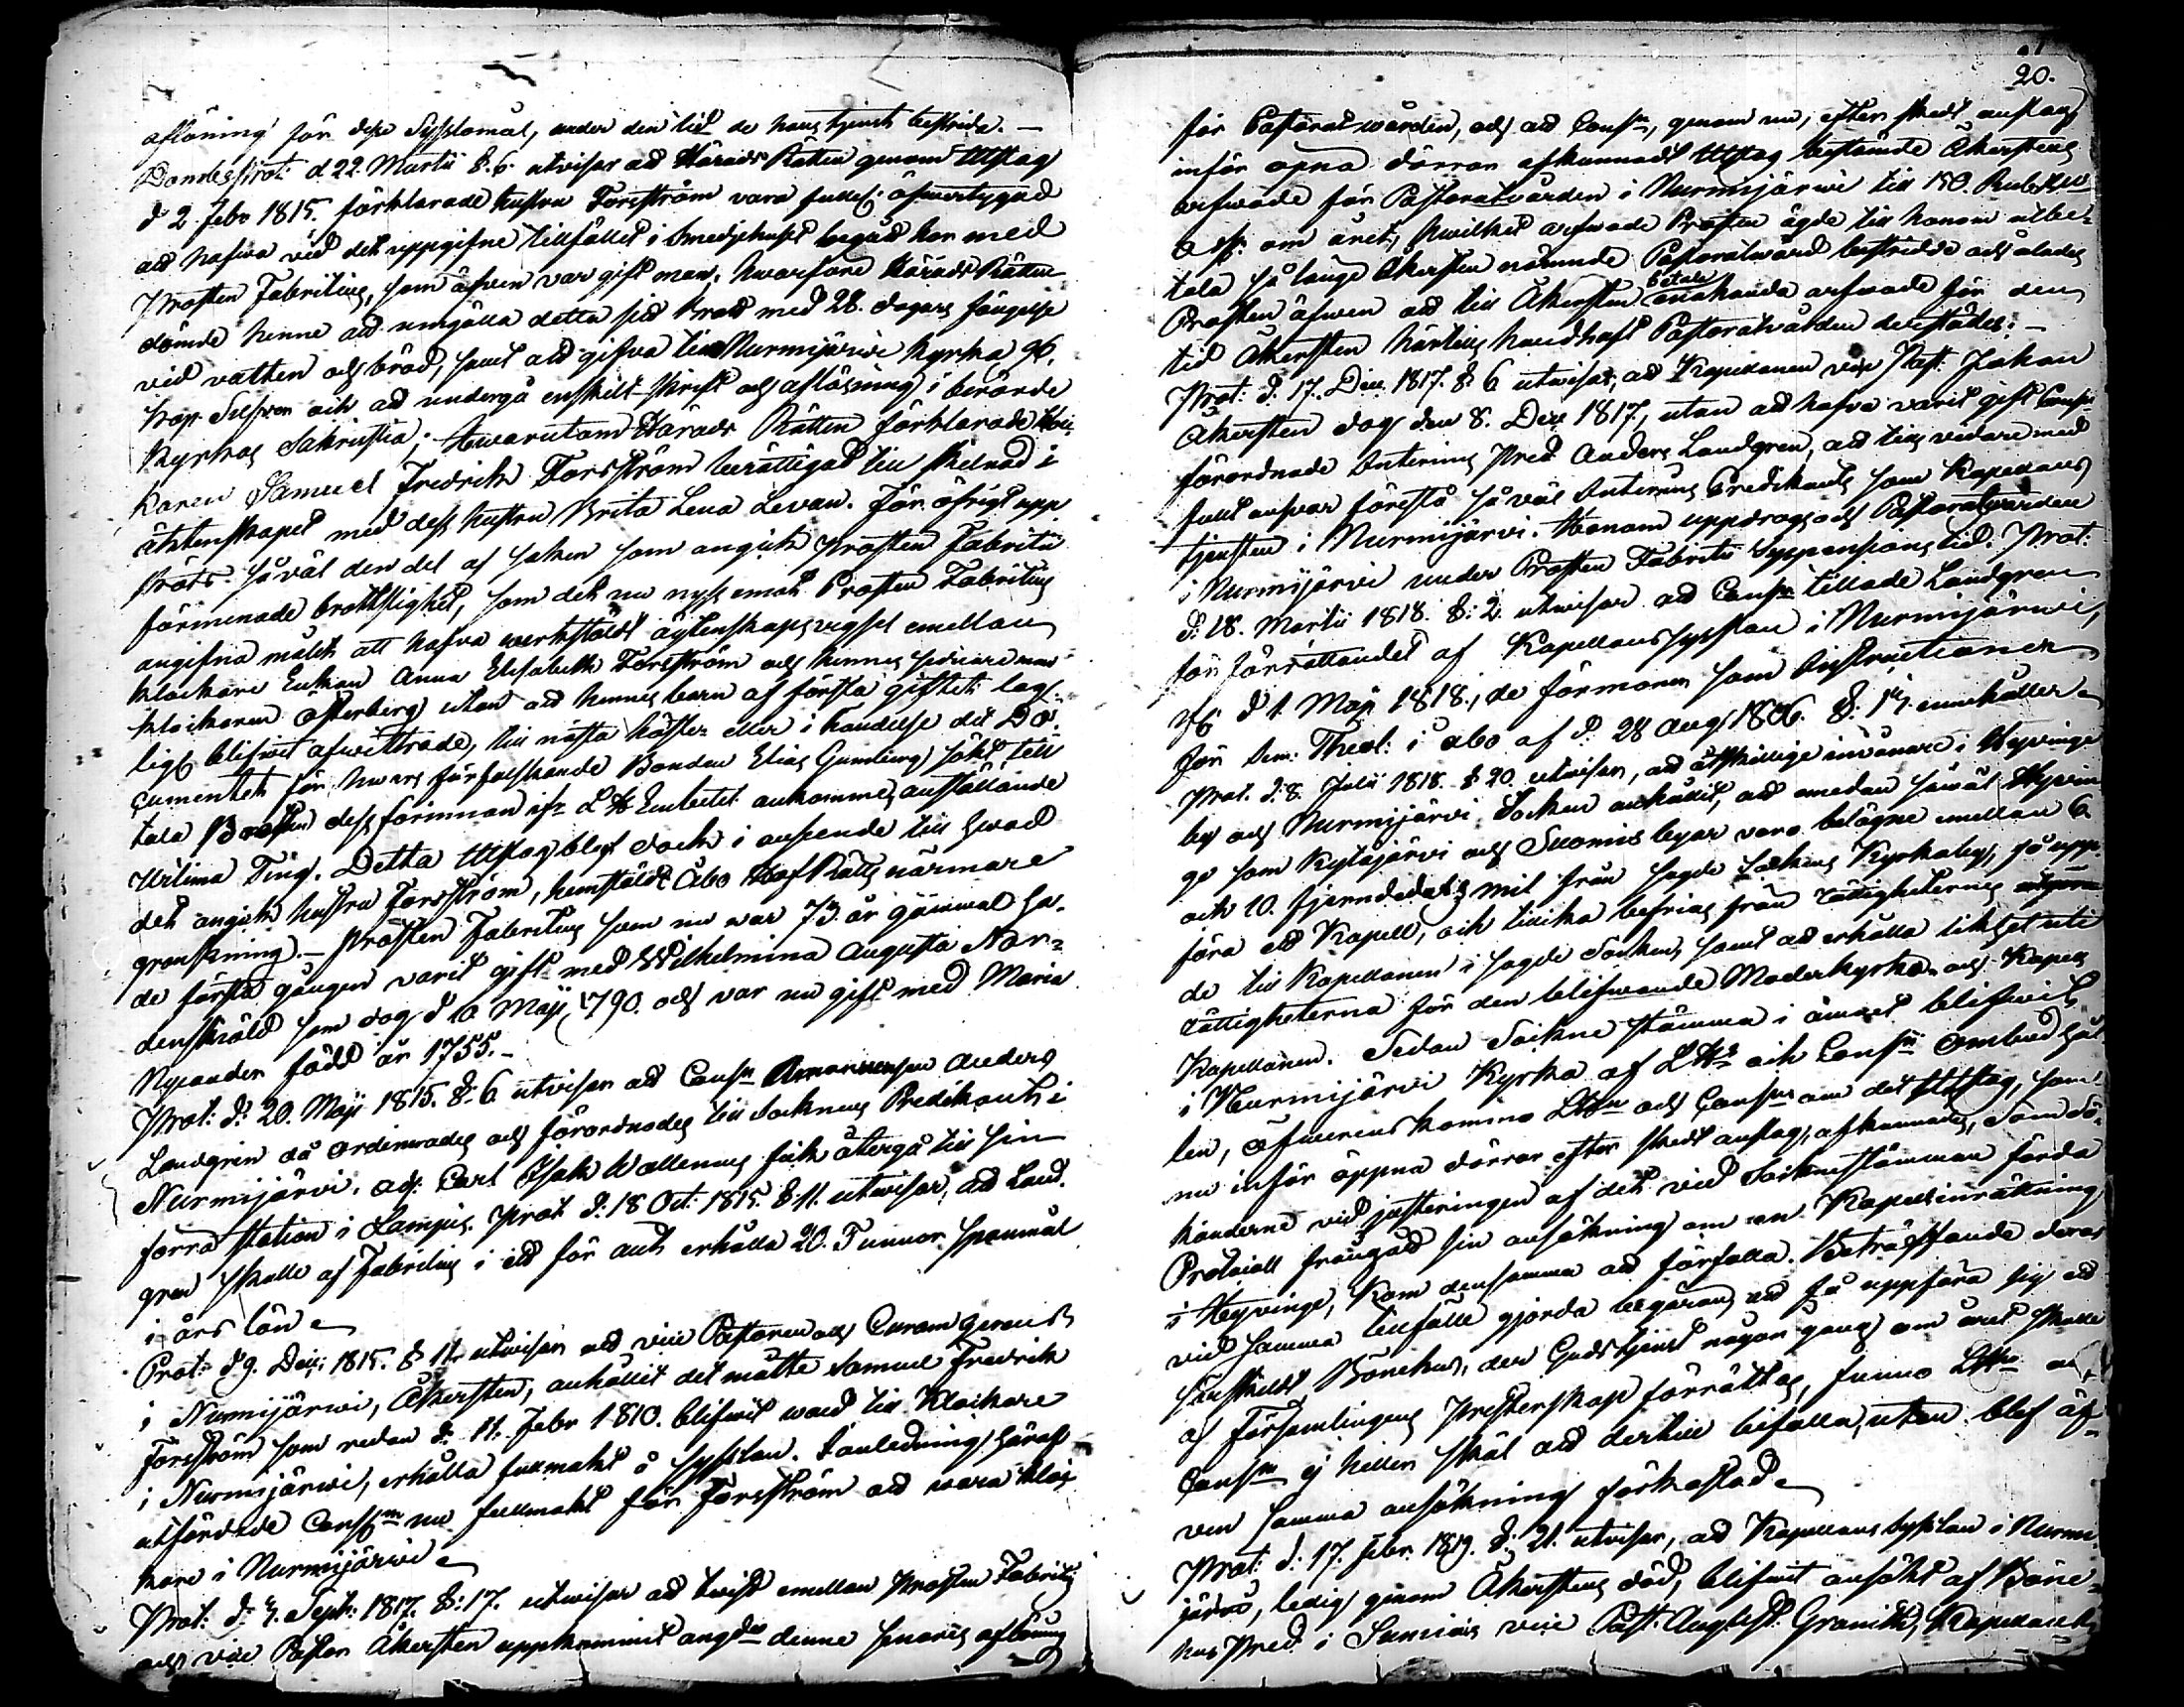 aflöning för desse Sysslomål, under den tid de hans tjenst bestrida. –
Domcs Prot: d 22. Martii §. 6 utvisar ad Härads Rätten genom Utslag
d 2 Febr 1815. förklarade hustru Forsström vara öfwertygad
ad hafwa vid det uppgifne tillfället i Smedjehuset begådt hor med
Prosten Fabritius, som äfven var gift man, hwarföre Härads Rätten
dömde henne ad umgälla detta sitt brott med 28. dagars fängelse
vid vatten och bröd, samt ad gifva till Nurmijärwi kyrka
Kop. Silfwer och ad undergå enskilt skrift och aflösning i berörde
kyrkas Sakristia; hwarutom Härads Rätten förklarade kloc-
karen Samuel Fredrik Forsström berättigad till skilnad i
äktenskapet med dess hustru Brita Lena Levan. För öfrigt upp
sköts så väl den del af saken som angick Prosten Fabritii
förmenade brottslighet, som det nu nyss emot Prosten Fabritius
angifna målet att hafva werkstäldt ägtenskaps vigsel emellan
klockare Enkan Anna Elisabeth Forsström och hennes sednare man
klockaren Österberg utan ad hennes barn af första giftet lag-
ligt blifwit afwittrade, till nästa höste- eller i händelse det Do-
cumentet för hwars förfalskande Bonden Elias Gumberg sökt till
tala Prosten dess förinnan ifr L H Embetet ankomme, anställande
Urtima Ting. Detta Utslag blef dock i anseende till hwad
det angick hustru Forsström, hemstäldt Åbo Hof Rätts närmare
granskning. – Prosten Fabritius som nu war 73 år gammal ha-
de första gången varit gift med Wilhelmina Augusta Nor-
denskiöld som dog d 10 Maji 1790. och var nu gift med Maria
Nycander född år 1755. –
Prot: d: 20. Maji 1815. §. 6 utvisar ad Consn Anders
Landgren då ordinerades och förordnades till Socknens Predikant i
Nurmijärvi, adj: Carl Isak Wallenius fick återgå till sin
förra station i Lampis. Prot d: 18 Oct: 1815. § 11. utwisar, ad Land-
gren skulle af Fabritius i ett för allt erhålla 20. Tunnor spanmål
i års lön
Prot: d 9. Dec: 1815. § 11. utwisar ad vice Pastoren och Curam gerens
i Nurmijärwi, Åkersten, anhållit det måtte Samuel Fredrik
Forsström som redan d: 11. Febr 1810. blifwit wald till Klockare
i Nurmijärwi, erhålla fullmakt å sysslan. I anledning häraf
utfärdade Consm nu fullmakt för Forsström ad vara kloc-
kare i Nurmijärwi
Prot: d: 4. Septr: 1817. §: 17. utwisar ad twist emellan Prosten Fabritius
och vice Pastor Åkersten uppkommit angde denne senares aflöning
20.
för Pastorals wården, och ad Consm, genom nu, efter skedt anslag
inför öpna dörrar afkunnadt Utslag bestämde Åkerstens
arfwode för Pastoralvården i Nurmijärwi till 150. Rubel
om året, hwilket arfwode Prosten ägde till honom utbe-
tala så länge Åkersten nämnde Pastoralwård bestridde och ålades
Prosten äfwen ad till Åkersten betala enahanda arfwode för den
tid Åkersten härtills handhaft Pastoralvården derstädes: –
Prot: d: 17. Dec: 1817. § 6 utwisar, ad Kapellanen vice Past. Johan
Åkersten dog den 8. Dec 1817, utan ad hafva varit gift. Consn
förordnade Interims Pred Anders Landgren, ad tills vidare med
fullt answar förestå så väl Interims Predikants som Kapellans
tjensten i Nurmijärvi. Honom uppdrogs och Pastoralvården
i Nurmijärvi under Prosten Fabritii Suspensions tid. Prot:
d: 18. Martii 1818. §: 2. utwisar ad Consm tillade Landgren
för förrättandet af Kapellans sysslan i Nurmijärwi,
d 1. Maji 1818., de förmoner som Instructionen
för Sem: Theol: i Åbo af d: 28 Aug 1806. §: 14. innehåller
Prot. d: 8. Julii 1818. § 20. utwisar, ad åtskillige invånare i Hyvinge
by och Nurmijärvi Socken anhållit, ad emedan såwäl Hyvin-
ge som Kytäjärvi och Suomis byar voro belägne emellan 6
och 10. fjerndedels mil från sagde Sockens Kyrkoby, få upp-
föra ett Kapell, och tillika befrias från rättigheternes
de till Kapellanen i sagde Socken, samt ad erhålla likhet uti
rättigheterna för den blifwande Moderkyrko- och Kapells
Kapellanen. Sedan Sockne stämma i ämnet blifwit
i Nurmijärvi Kyrka af LHs och Consm ombud hål-
len, öfwerenskommo LHn och Consm om det Utslag, som
nu inför öppna dörrar efter skedt anslag, afkunnades, Som Sö-
kanderne vid justeringen af det vid Sockenstämman förda
Protocoll frångådt sin ansökning om en Kapellsinrättning
i Hyvinge, kom densamma ad förfalla. Beträffande deras
vid samma tillfälle gjorda begäran, ad få uppföra sig ett
särskildt Bönehus, der Gudstjenst någon gång om året skulle
af församlingens Presterskap förrättas, funno LHn och
Consm ej heller skäl ad dertill bifalla, utan blef äf-
ven samma ansökning förkastad
Prot: d: 17. Febr. 1819. §: 21. utvisar, ad Kapellans sysslan i Nurmi-
järvi, ledig genom Åkerstens död, blifwit ansökt af Böne-
hus Pred: i Sumiais vice Past. August Granith, Kapellanen